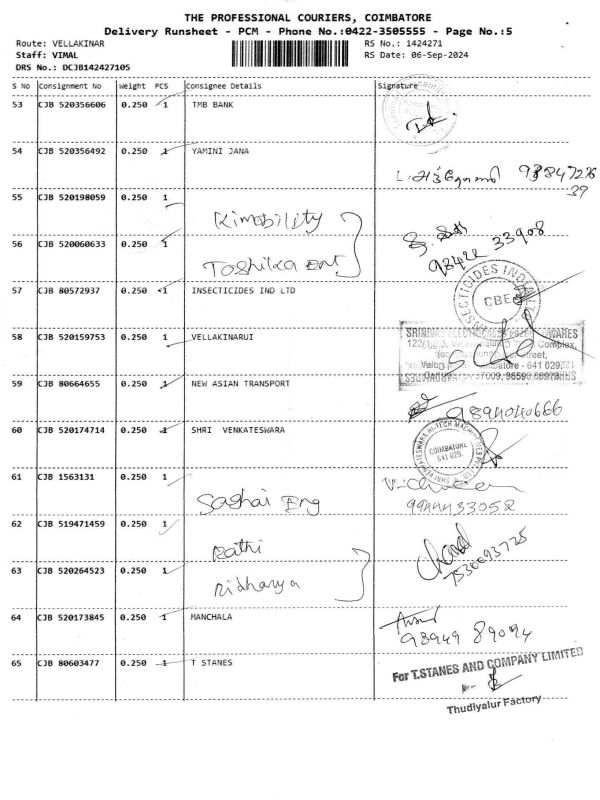 THE PROFESSIONAL COURIERS, COIMBATORE
Delivery Runsheet - PCM - Phone No.:0422-3505555 - Page No.:5
Route: VELLAKINAR RS No.: 1424271
Staff: VIMAL RS Date: 06-Sep-2024
DRS No.: DCJB142427105
S No Consignment No Weight PCS Consignee Details Signature
53 CJB 520356606 0.250 1 TMB BANK
54 CJB 520356492 0.250 1 YAMINI JANA
55 CJB 520198059 0.250 1 Kimobility
56 CJB 520060633 0.250 1 Toshilka Ent 98422 33908
57 CJB 80572937 0.250 1 INSECTICIDES IND LTD
CBE
58 CJB 520159753 0.250 1 VELLAKINARUI
59 CJB 80664655 0.250 1 NEW ASIAN TRANSPORT
9894040666
60 CJB 520174714 0.250 1 SHRI VENKATESWARA
COIMBATORE
641 029.
61 CJB 1563131 0.250 1 Saghai Eng
9944433052
62 CJB 519471459 0.250 1 Rathi
63 CJB 520264523 0.250 1 Ridhanya 7530093725
64 CJB 520173845 0.250 1 MANCHALA
98949 89094
65 CJB 80603477 0.250 1 T STANES
For T.STANES AND COMPANY LIMITED
Thudiyalur Factory